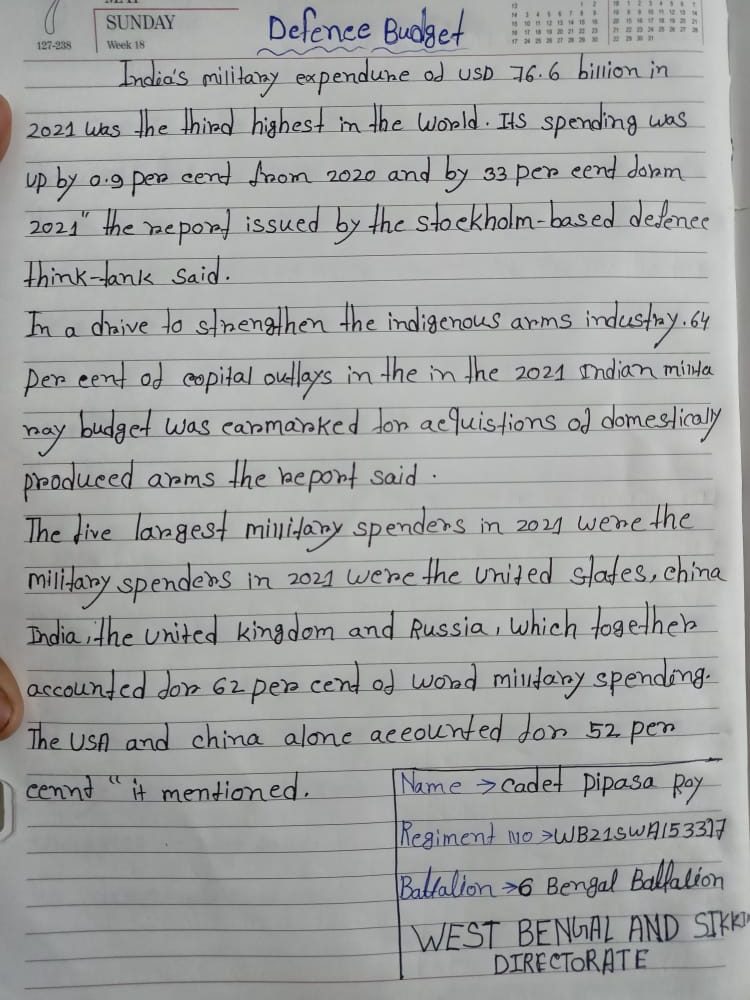 SUNDAY
127-238
Week 18
Defence Budget
India's military expendure of USD 76.6 billion in
2021 was the third highest in the world. Its spending was
up by 0.9 per cent from 2020 and by 33 per cent form
2021" the report issued by the stockholm-based defence
think-tank said.
In a drive to strengthen the indigenous arms industry. 64
per cent of copital outlays in the in the 2021 Indian milita
ray budget was earmarked for acquistions of domestically
produced arms the report said.
The five largest millitary spenders in 2021 were the
military spenders in 2021 were the united states, china
India, the united kingdom and Russia, which together
accounted for 62 per cent of word military spending.
The USA and china alone accounted for 52 per
cennt" it mentioned.
Name → cadet Pipasa Roy
Regiment No → WB21SWA153317
Battalion → 6 Bengal Battalion
WEST BENGAL AND SIKKIM
DIRECTORATE